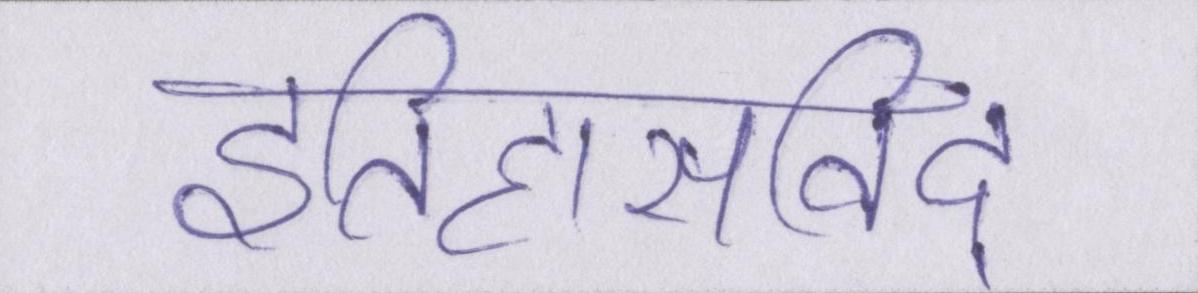 इतिहासविद